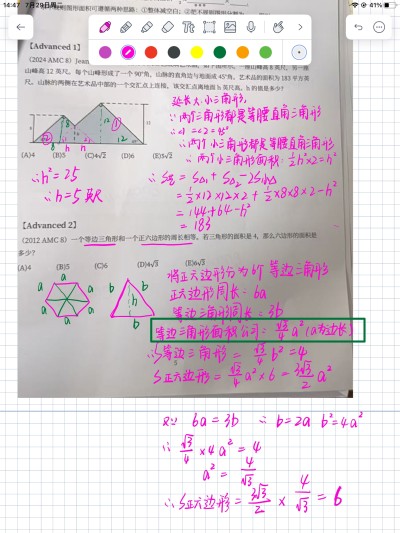 14:47 7月29日周二
41%
【Advanced 1】
(2024 AMC 8) Jean
山峰高 12 英尺。每个山峰形成了一个 90°角，山脉的直角边与地面成 45°角。艺术品的面积为 183 平方英
尺。山脉的两侧在艺术品中部的一个交汇点上连接，该交汇点离地面 h 英尺高。h 的值是多少？
延长大,小三角形,
∴两个三角形都是等腰直角三角形
∴∠1=∠2=45°
∴两个小三角形都是等腰直角三角形
∴两个小三角形面积: ½h²×2=h²
8
8
12
12
h
h
h
①
②
(A)4 (B)5 (C)4√2 (D)6 (E)5√2
∴h²=25
∴h=5英尺
∴S总=S△1+S△2-2S小△
=½×12×12×2+½×8×8×2-h²
=144+64-h²
=183
【Advanced 2】
(2012 AMC 8) 一个等边三角形和一个正六边形的周长相等。若三角形的面积是 4，那么六边形的面积是
多少？
(A)4 (B)5 (C)6 (D)4√3 (E)6√3
a
a
a
a
a
a
b
b
h
b
将正六边形分为6个等边三角形
正六边形周长=6a
等边三角形周长=3b
等边三角形面积公式=√3/4 a²(a为边长)
S等边三角形=√3/4 b²=4
S正六边形=√3/4 a²×6=3√3/2 a²
又∵ 6a=3b ∴b=2a b²=4a²
∴ √3/4×4a²=4
a²=4/√3
∴S正六边形=3√3/2×4/√3=6